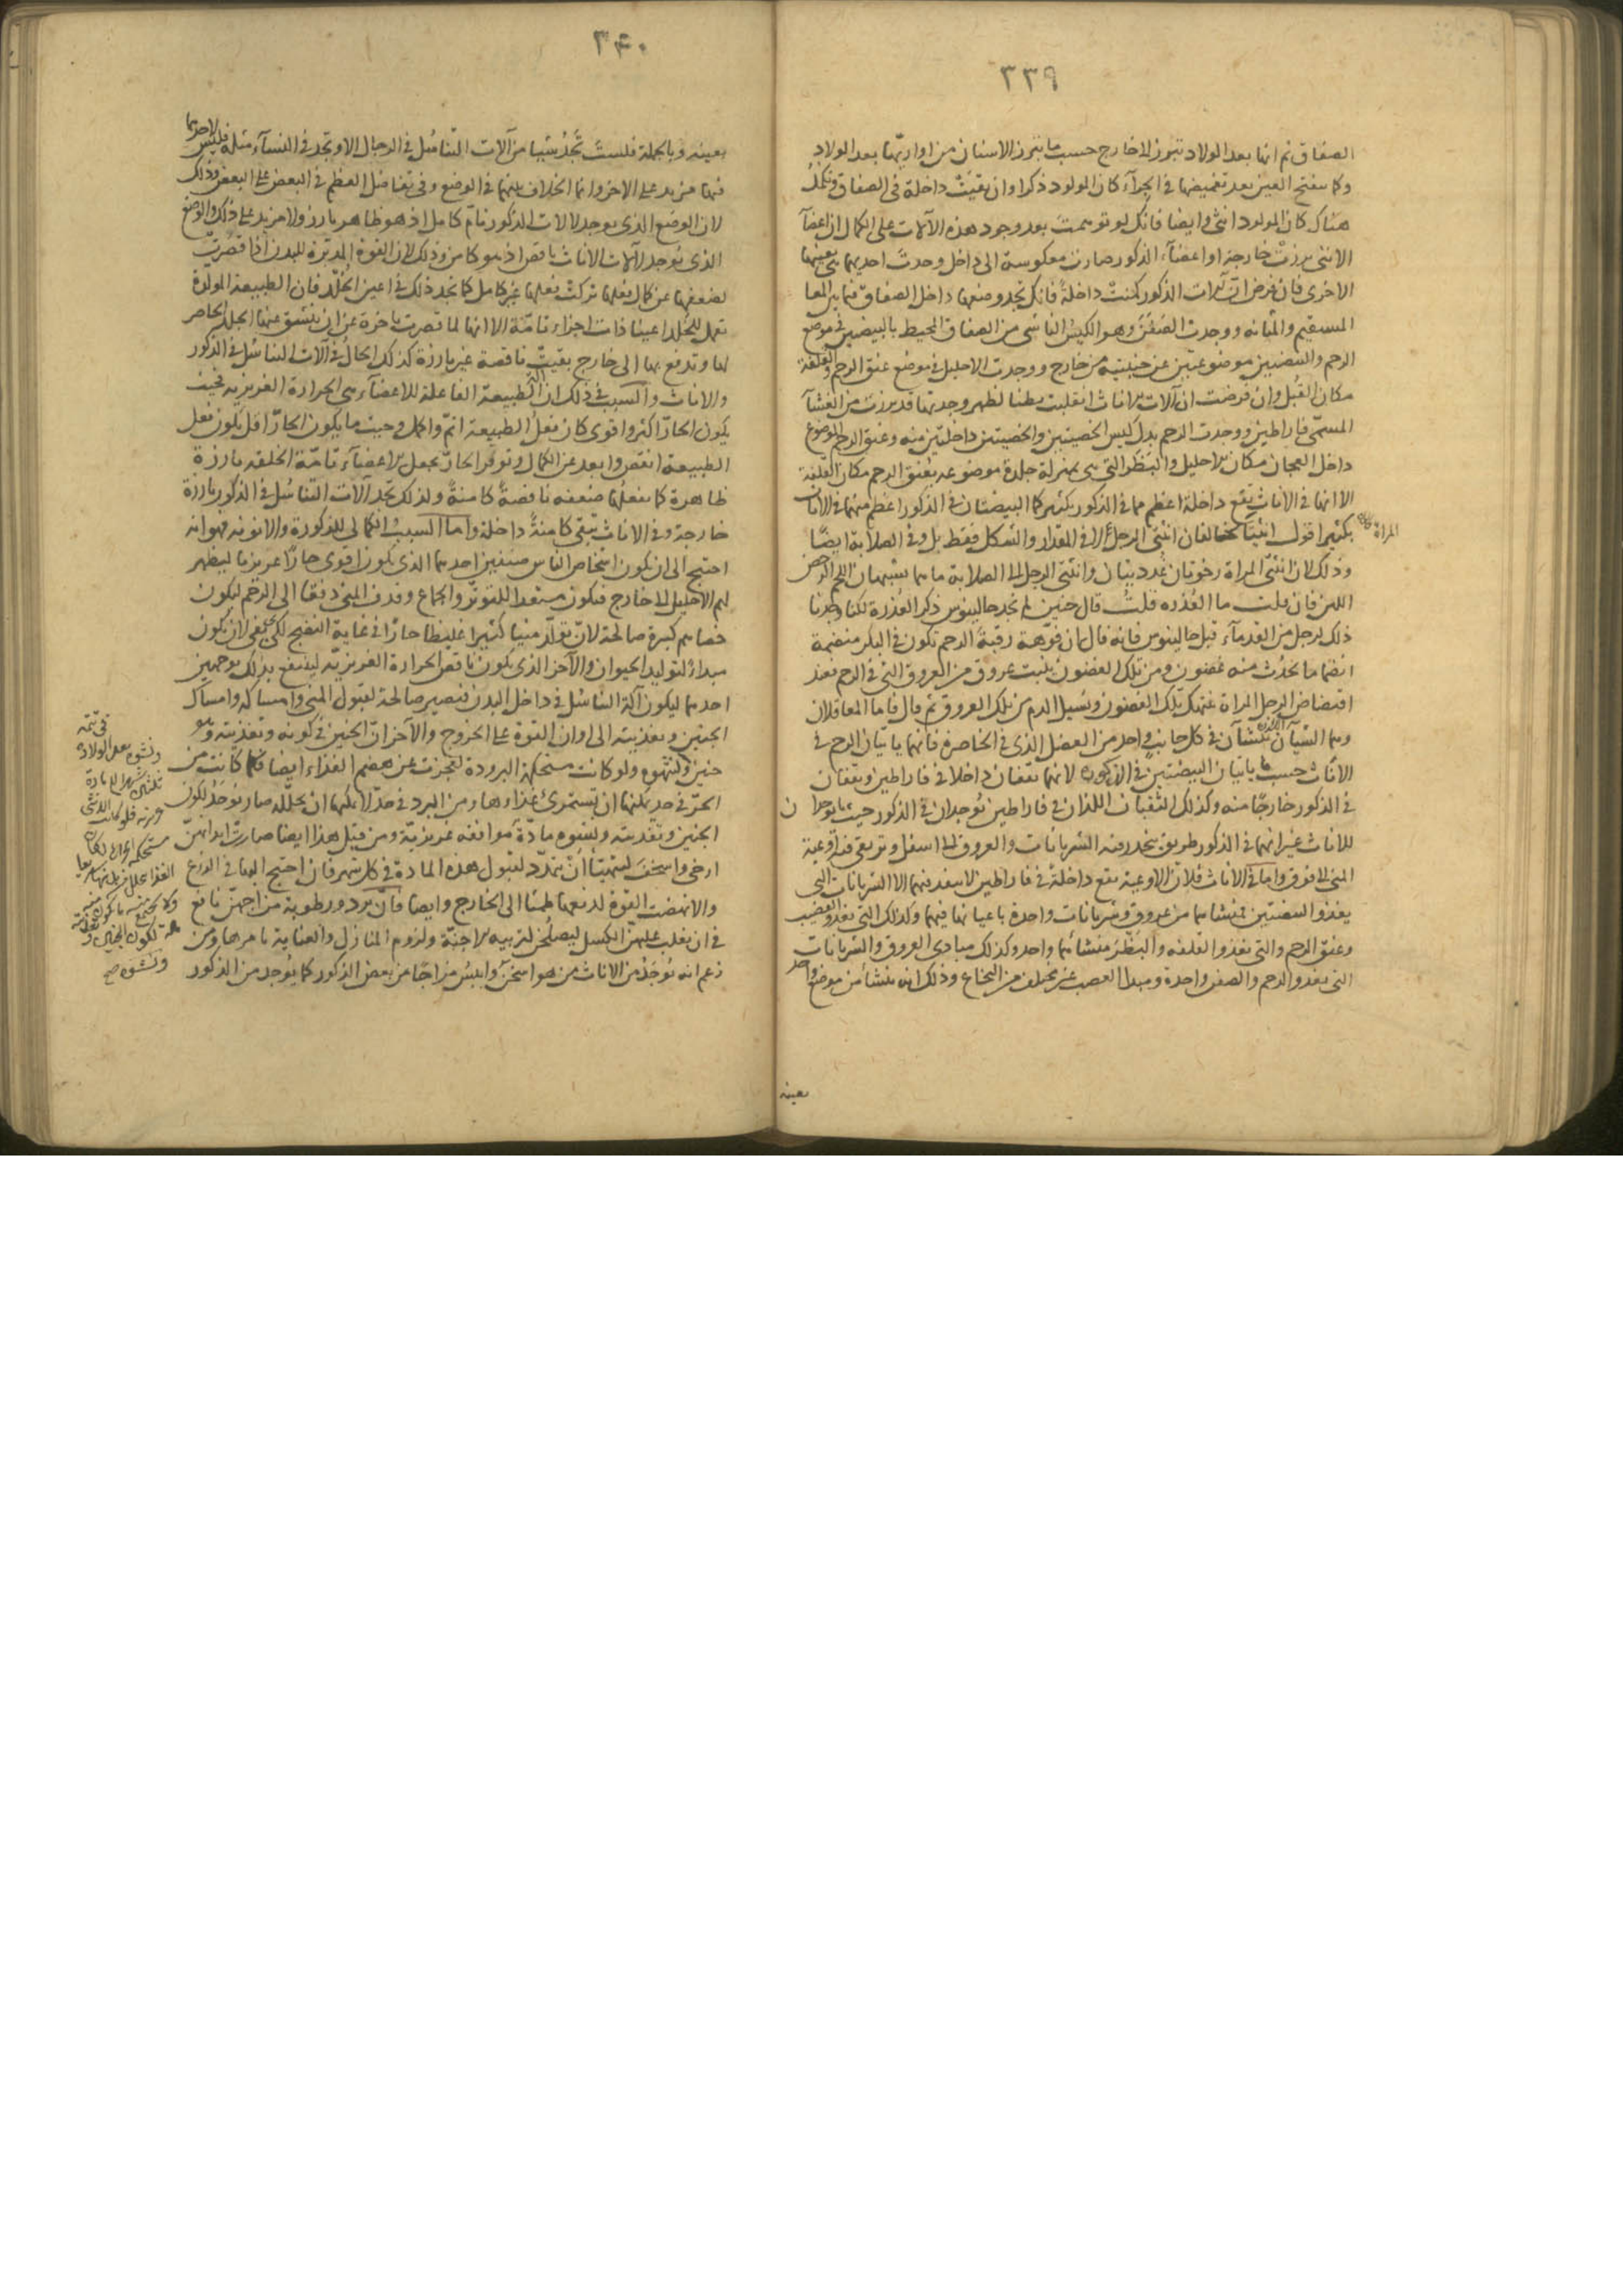 ٣٣٩
الصفاق ثم انها بعد الولاد تبرز الى خارج حسب ما تبرز الاسنان من اواريها بعد الولاد
وكما ينفتح العين بعد تغميضها في الجراء كان المولود ذكرا وان بقيت داخلة في الصفاق وتكمل
هناك كان المولود انثى وايضا فانك لو توهمت بعد وجود هذه الآلات على الكمال ان اعضآ
الانثى برزت خارجة او اعضآء الذكور صارت معكوسة الى داخل وجدت احديهما هي بعينها
الاخرى فان فرض ان آلات الذكور كمنت داخلة فانك تجد وضعها داخل الصفاق فيما بين المعا
المستقيم والمثانه ووجدت الصفن وهو الكيس الناشى من الصفاق المحيط بالبيضتين في موضع
الرحم والبيضتين موضوعتين عن جنبتيه من خارج ووجدت الاحليل في موضع عنق الرحم والقلفة
مكان القبل وان فرضت ان آلات الاناث انقلبت بطنا لظهر وجدتها قد برزت من الغشآ
المسمى فاراطين ووجدت الرحم بدل كيس الخصيتين والخصيتين داخلتين منه وعنق الرحم الموضوع
داخل العجان مكان الاحليل والبظر التي هي بمنزلة جلدة موضوعه بعنق الرحم مكان القلفة
الا انها في الاناث تقع داخلة اعظم مما في الذكور بكثير كما البيضتان في الذكور اعظم منهما في الاناث
بكثير اقول انثيا تخالفان انثيي الرجل لا في المقدار والشكل فقط بل وفي الصلابة ايضا
المراة
وذلك لان انثيي المراة رخوتان غدديتان وانثيي الرجل الى الصلابة ما هما يشبهان اللحم الرخص
اللين فان قلت ما العُذره قلت قال حنين لم نجد جالينوس ذكر العُذرة لكنا وجدنا
ذلك لرجل من القدمآء قبل جالينوس فانه قال ان فوّهة رقبة الرحم تكون في البكر منضمة
انضماما يحدث منه غضون ومن تلك الغضون ينبت عروق من العروق التي في الرحم فعند
افتضاض الرجل المراة تنهتك تلك الغضون وتسيل الدم من تلك العروق ثم قال فاما المعاقلان
وهما الشيآن اللذان ينشآن في كل جانب في احد من العضل الذي في الخاصرة فانهما ياتيان الرحم في
الاناث حسب ما ياتيان البيضتين في الذكوره لانهما تقفان داخلا في فاراطين ويقفان
في الذكور خارجا منه وكذلك الثقبان اللذان في فاراطين يوجدان في الذكور حيث يوجدان
للاناث غير انهما في الذكور طريق ينحدر فيه الشريانات والعروق الى اسفل وترتقي فيه اوعية
المني الى فوق واما في الاناث فلان الاوعية تقع داخلة في فاراطين لا ينفذ فيهما الا الشريانات التي
يغذو السفتين فمنشاهما من عروق وشريانات واحدة باعيانها فيهما وكذلك التي تغذو القضيب
وعنق الرحم والتي تغذو القلفه والبظر منشائهما واحد وكذلك مبادى العروق والشريانات
التي تغذو الرحم والصفن واحدة ومبدا العصب غير مختلف من النخاع وذلك انه ينشأ من موضع واحد
بعينه
٣٤٠
بعينه وبالجملة فلست تجد شيئا من آلات التناسل في الرجال الا وتجد في النسآء مثله فليس لاحديهما
فيها مزيد على الاخر وانما الخلاف بينهما في الوضع وفي تفاضل العظم في البعض على البعض وذلك
لان الوضع الذي يوجد لآلات الذكور تام كامل اذ هو ظاهر بارز ولا مزيد على ذلك والوضع
الذي يوجد لآلات الاناث ناقص اذ هو كامن وذلك لان القوة المدبرة للبدن اذا قصرت
لضعفها عن كمال فعلها تركت فعلها غير كامل كما نجد ذلك في اعين الخلد فان الطبيعة المولدة
تعمل للخلد اعينا ذات اجزاء تامة الا انها لما قصرت باخرة عن ان ينشق عنها الجلد الحاصر
لها وتدفع بها الى خارج بقيت ناقصة غير بارزة كذلك الحال في آلات التناسل في الذكور
والاناث والسبب في ذلك ان الطبيعة الفاعلة للاعضآء هي الحرارة الغريزيه فحيث
يكون الحار اكثر واقوى كان فعل الطبيعة اتم واكمل وحيث ما يكون الحار اقل يكون فعل
الطبيعة انقص وابعد عن الكمال وتوفر الحار يجعل الاعضآء تامة الخلقه بارزة
ظاهرة كما يفعلها ضعفه ناقصة كامنة ولذلك تجد آلات التناسل في الذكور بارزة
خارجة وفي الاناث تبقى كامنة داخلة واما السبب الكمالي للذكورة والانوثه فهو انه
احتيج الى ان تكون اشخاص الناس صنفين احدهما الذي يكون اقوى حارا غريزيا ليظهر
لهم الاحليل الى خارج فيكون مستعدا للتوتر والجماع وقذف المني دفقا الى الرحم ليكون
خصاهم كبيرة صالحة لان تولد منيا كثيرا غليظا حارا في غاية النضج لكي يفي لان يكون
مبداء لتوليد الحيوان والآخر الذي يكون ناقص الحرارة الغريزيه لينتفع بذلك بوجهين
احدهما ليكون آلة التناسل في داخل البدن فتصير صالحة لقبول المني وامساكه وامساك
الجنين وتغذيته الى اوان القوة على الخروج والآخر ان الجنين في كونه وتغذيته وهو
جنين ولو كانت مستحكمة البرودة لعجزت عن هضم الغذاء ايضا فلما كانت من
الحر في حد يمكنها ان تستمرئ غذاءها ومن البرد في حد لا يمكنها ان يحلله صار يوجد لكون
الجنين وتغذيته ونشوه مادة موافقه غريزية ومن قبل هذا ايضا صارت ابدانهن
ارخى واسخف ليتهيأ ان يتمدد لقبول هذه المادة في كل شهر فان احتيج اليها في الزرع
والا نهضت القوة لدفعها طمثا الى الخارج وايضا فان برد ورطوبة مزاجهن نافع
في ان يغلب عليهن الكسل ليصلحن لتربيه الاجنة ولزوم المنازل والعناية بامرها ومن
زعم انه يوجد من الاناث من هو اسخن وايبس مزاجا من بعض الذكور كما يوجد من الذكور
ونشوه بعد الولادة
ونشوه صح